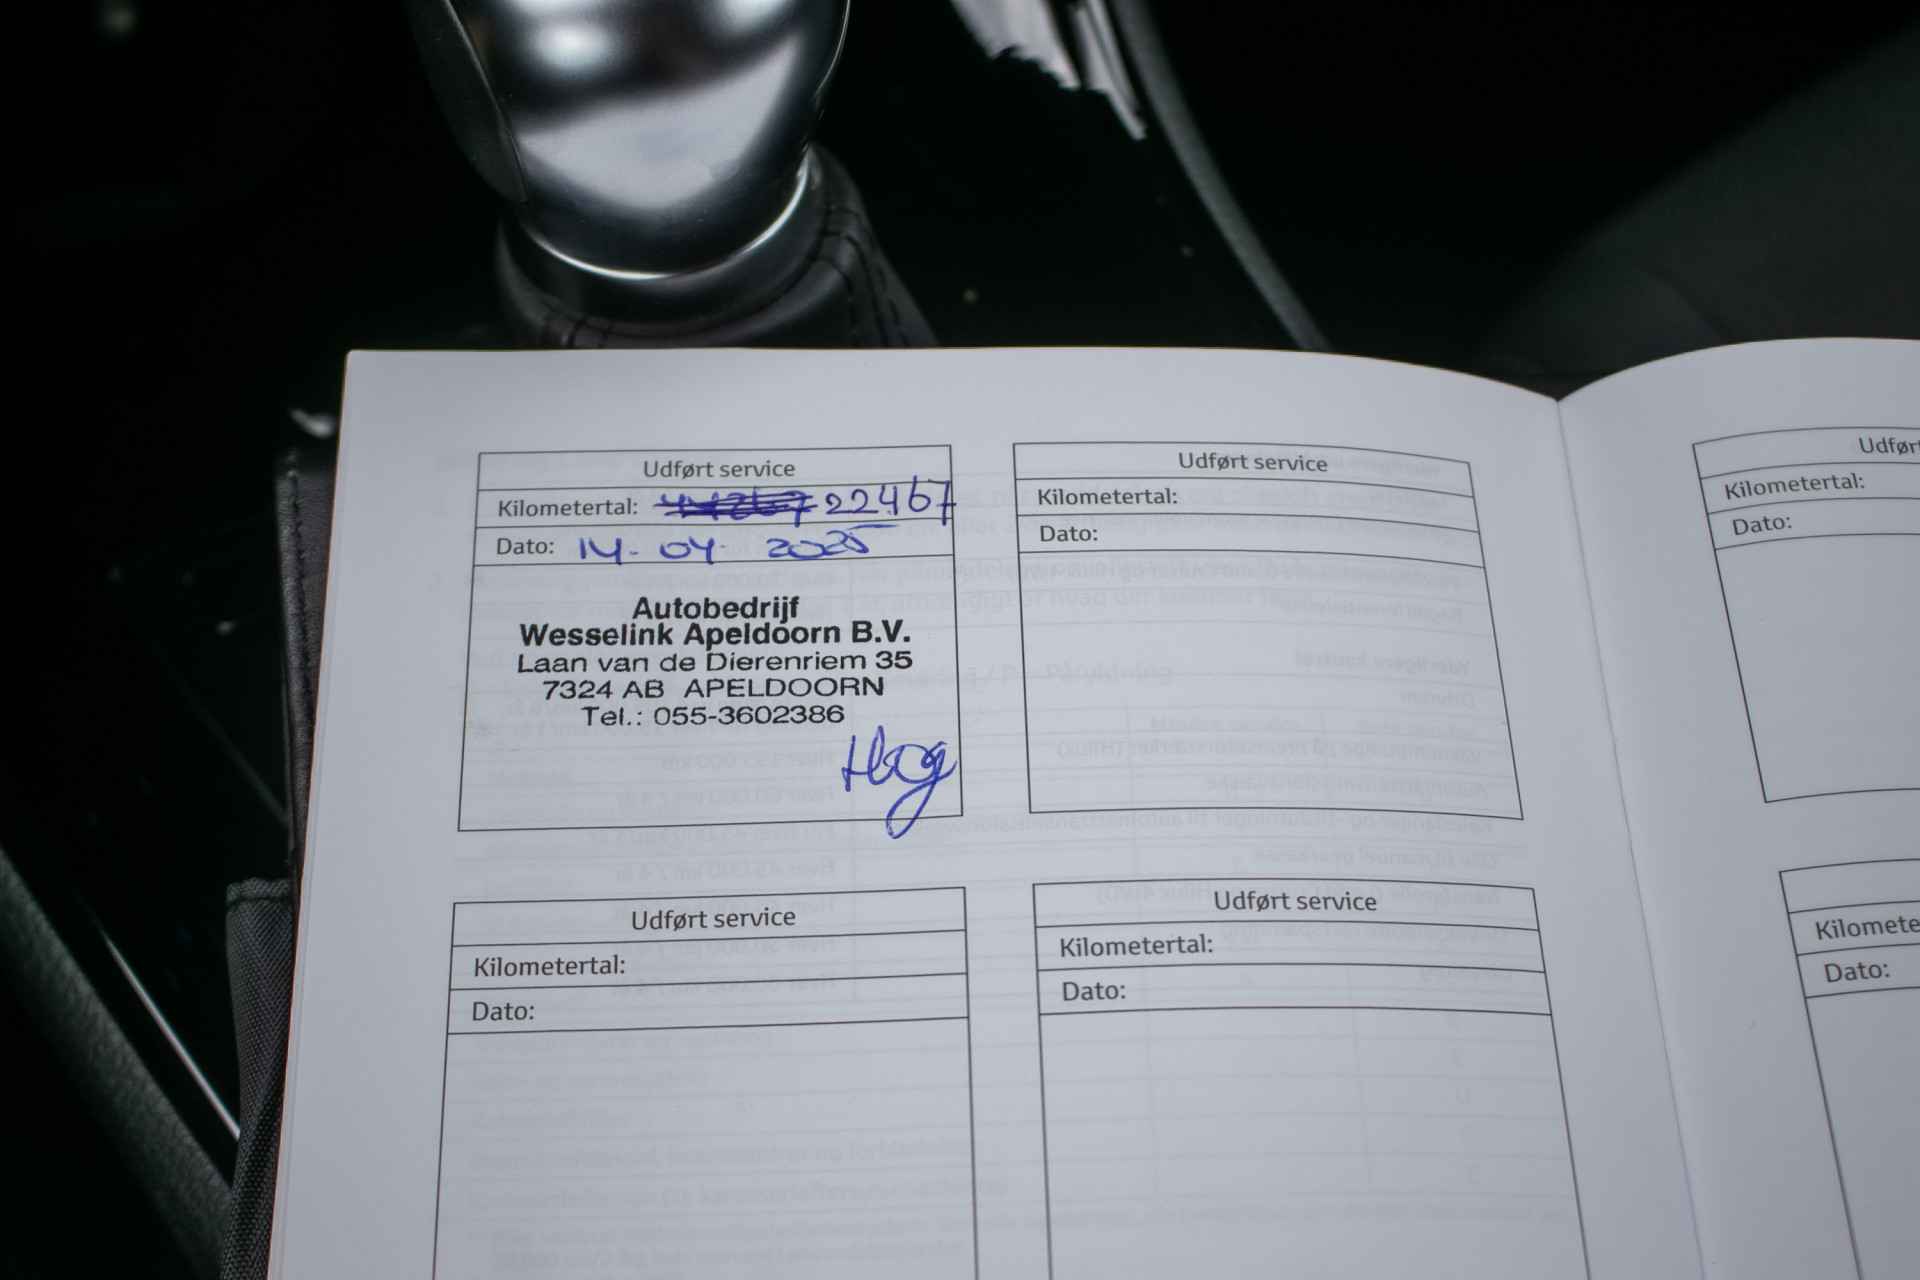 Udført service
Kilometertal: 22467
Dato: 14-04-2025
Autobedrijf
Wesselink Apeldoorn B.V.
Laan van de Dierenriem 35
7324 AB APELDOORN
Tel.: 055-3602386
Udført service
Kilometertal:
Dato:
Udført service
Kilometertal:
Dato:
Udført service
Kilometertal:
Dato:
Kilometertal:
Dato:
Dato: